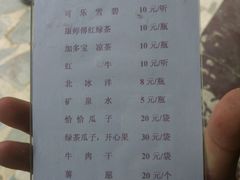 可乐 雪碧 10元/听
康师傅红绿茶 10元/瓶
加多宝 凉茶 10元/瓶
红牛 10元/听
北冰洋 8元/瓶
矿泉水 5元/瓶
恰恰瓜子 20元/袋
绿茶瓜子，开心果 30元/袋
牛肉干 20元/袋
薯 20元/个